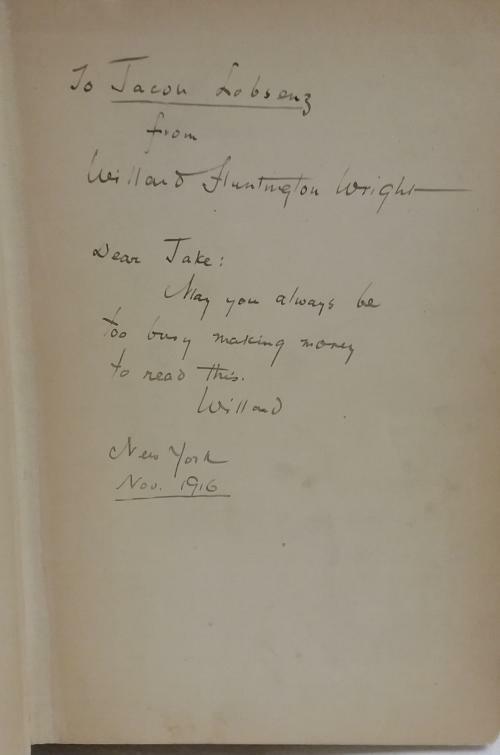 To Jacob Lobsenz
from
Willard Huntington Wright
Dear Jake:
May you always be
too busy making money
to read this.
Willard
New York
Nov. 1916